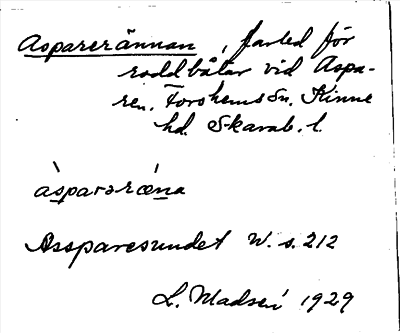 Asparerännan, farled för
roddbåtar vid Aspa-
ren. Forshems Sn. Kinne
hd. Skarab. l.
àsparərǽna
Assparesundet W. s. 212
L. Madsén 1929